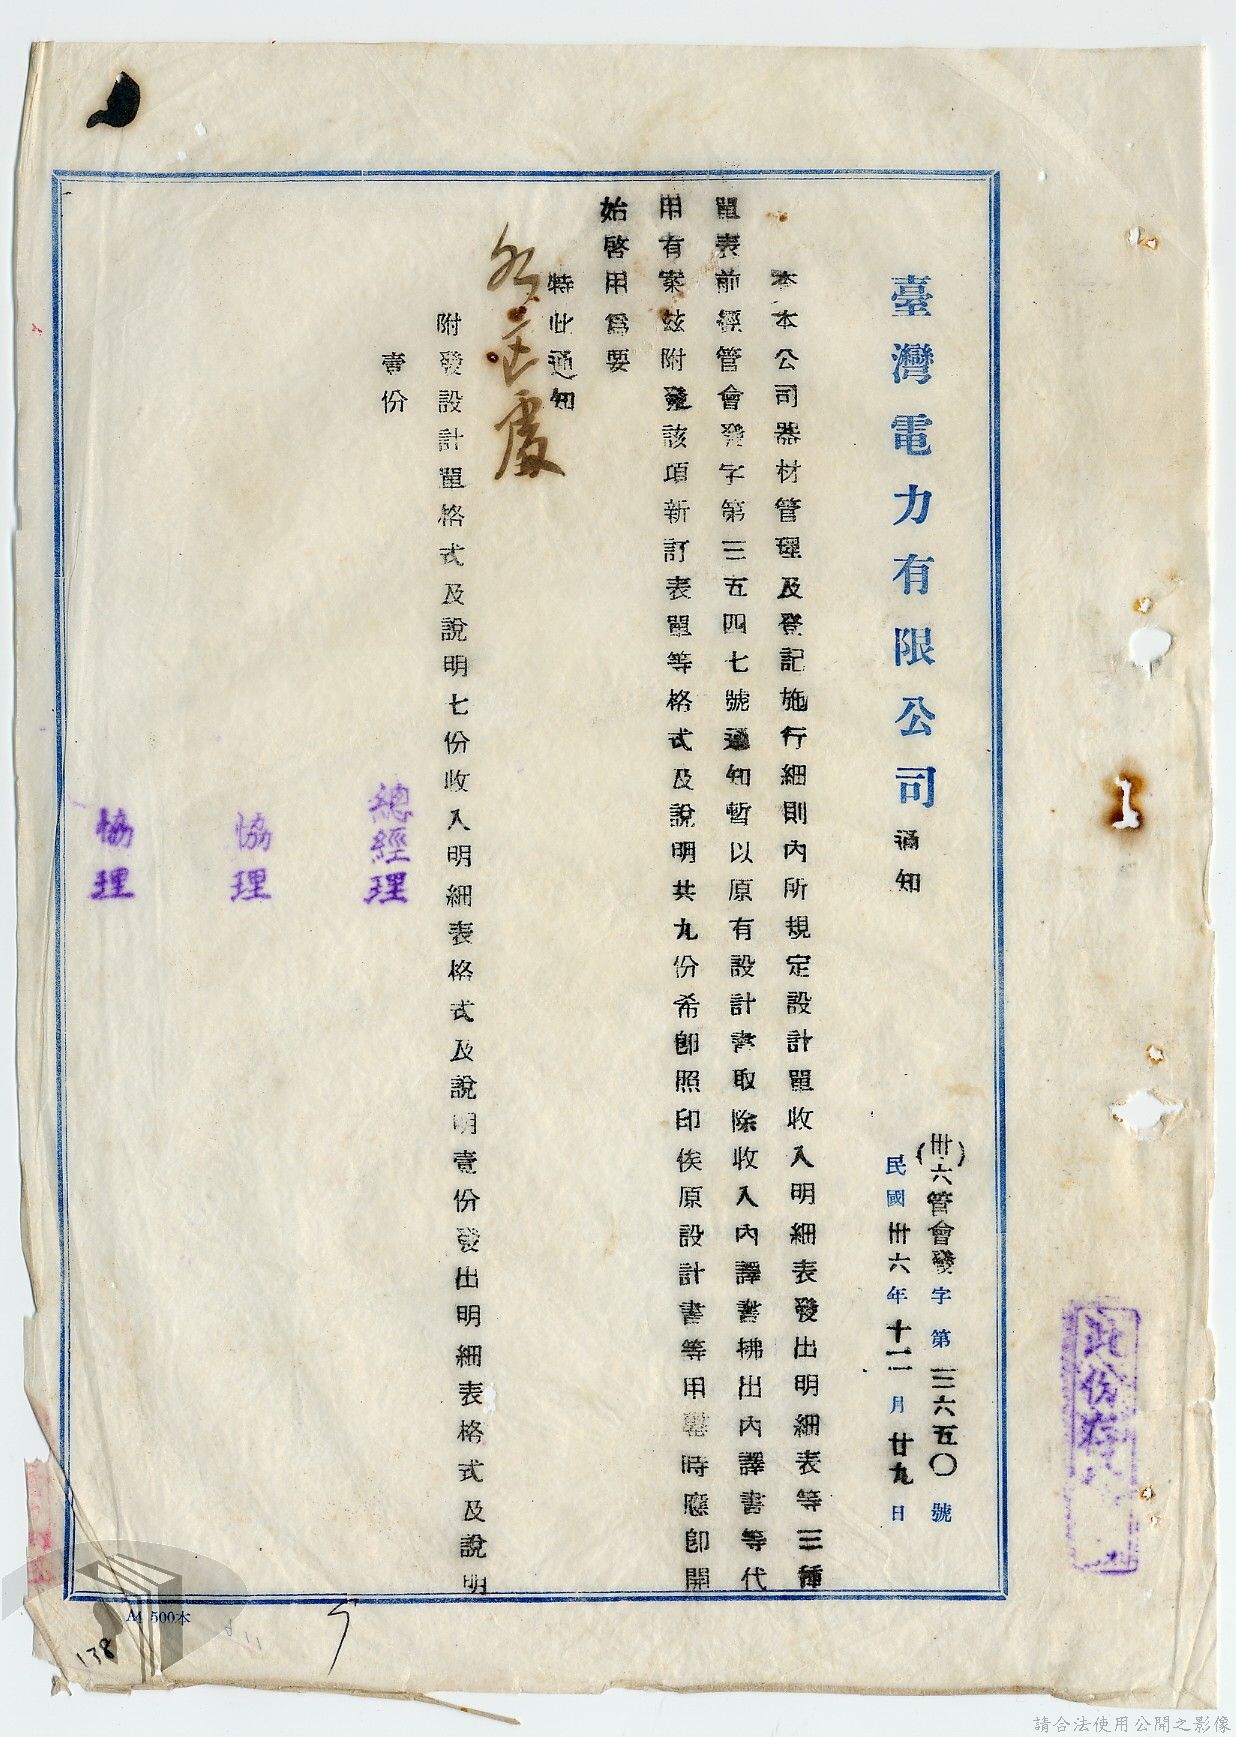 臺灣電力有限公司 通知
(卅六)管會發字第三六五〇號
民國卅六年十二月廿九日
本本公司器材管理及登記施行細則內所規定設計單收入明細表發出明細表等三種
單表前經管會發字第三五四七號通知暫以原有設計書取除收入內譯書拂出內譯書等代
用有案茲附發該項新訂表單等格式及說明共九份希即照印俟原設計書等用罄時應即開
始啓用爲要
特此通知
處
附發設計單格式及說明七份收入明細表格式及說明壹份發出明細表格式及說明
壹份
總經理
協理
協理
此份存
A4 500本
138
請合法使用公開之影像